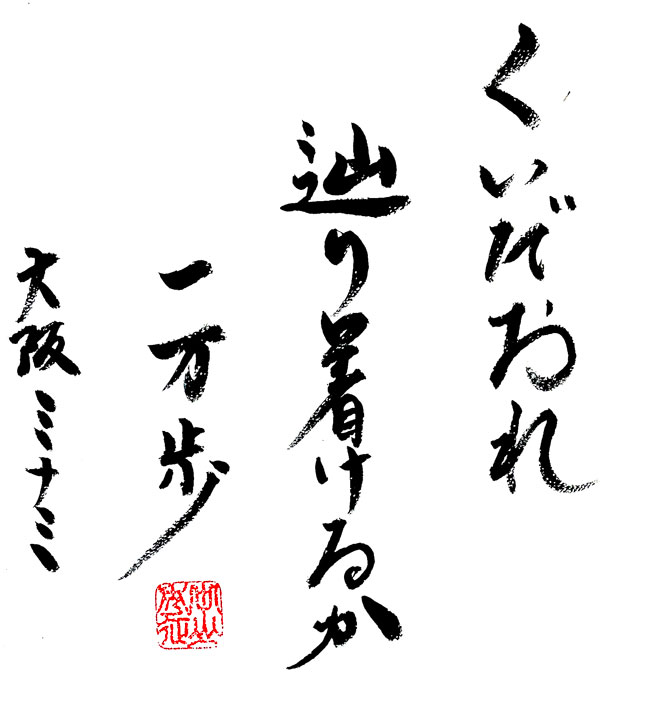 くいだおれ
辿り着けるか
一万歩
大阪ミナミ